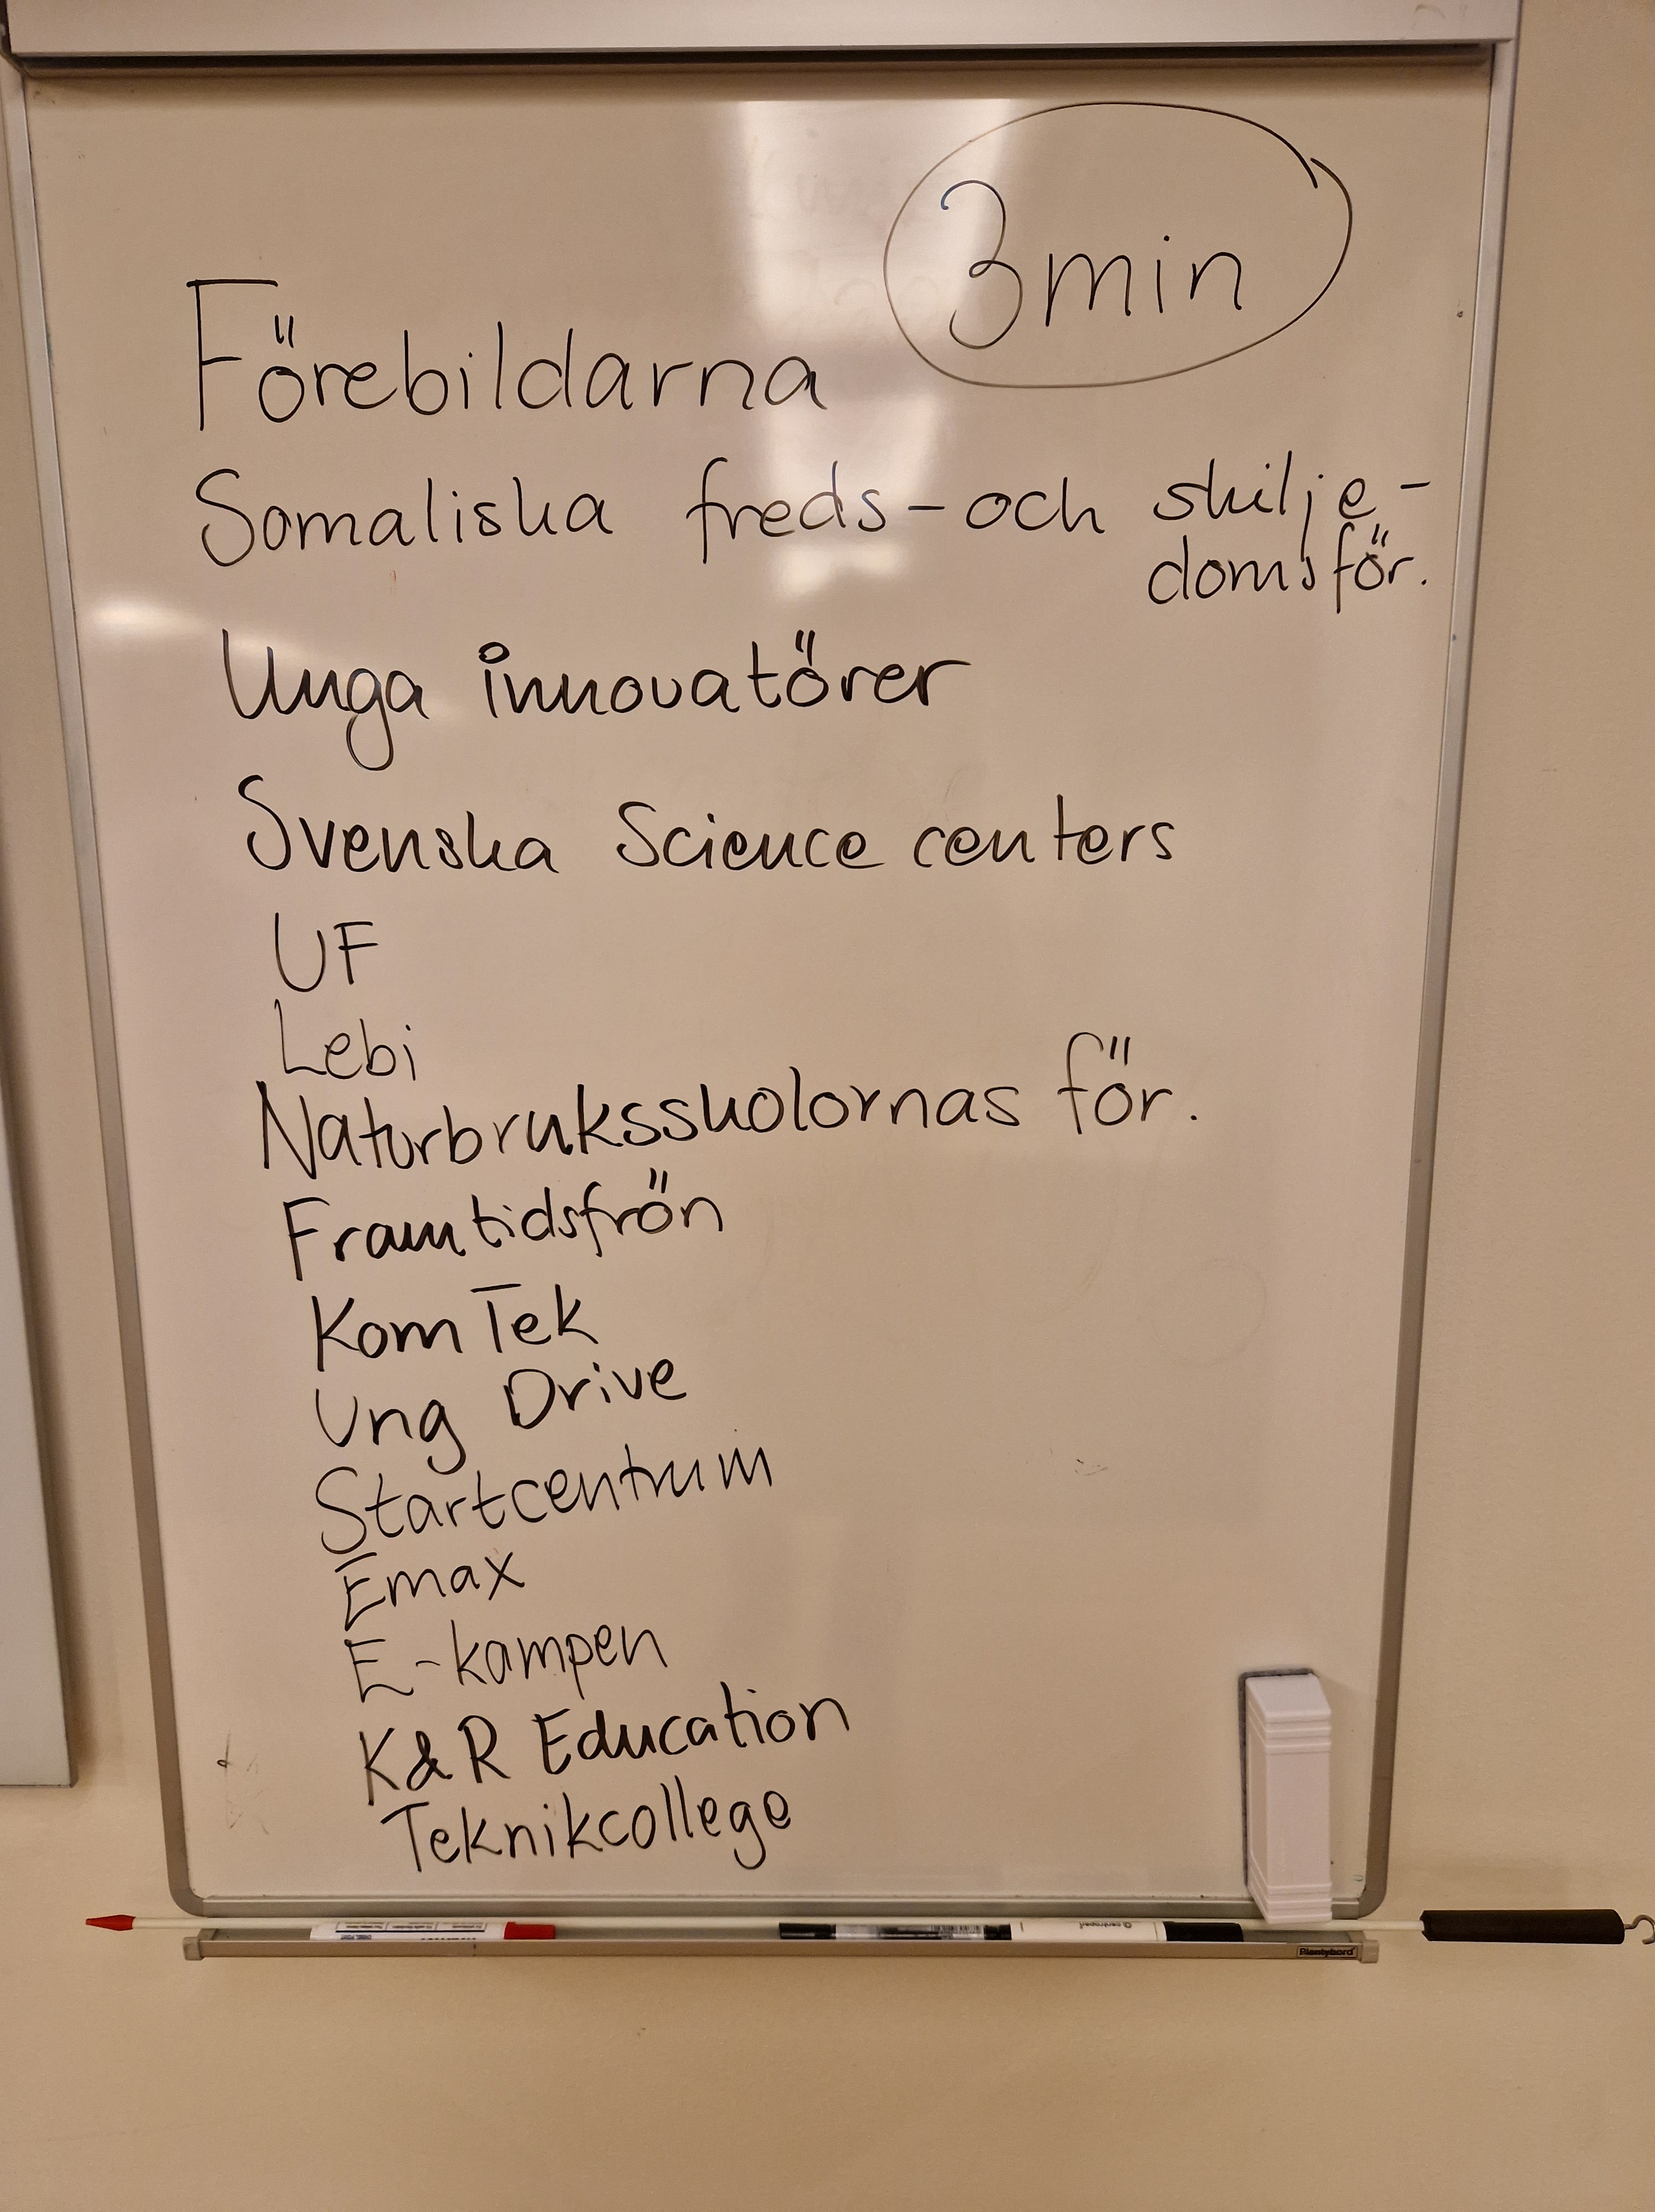 3 min
Förebildarna
Somaliska freds-och skilje-
domsför.
Unga innovatörer
Svenska Science centers
UF
Lebi
Naturbruksskolornas för.
Framtidsfrön
KomTek
Ung Drive
Startcentrum
Emax
E-kampen
K&R Education
Teknikcollege
Plentybord